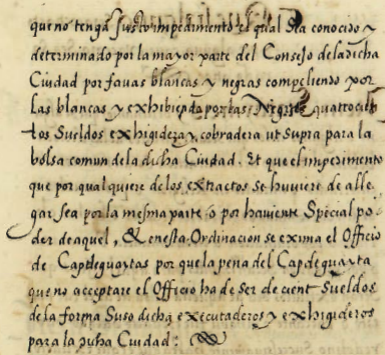 que no tenga justo impedimento el qual sea conocido y
determinado por la mayor parte del Consejo dela dicha
Ciudad por favas blancas y negras compeliendo por
las blancas y exhibiendo por las Negras quattrocien
tos Sueldos exhigidera y cobradera ut supra para la
bolsa comun dela dicha Ciudad. Et que el impedimento
que por qual quiere delos extractos se huviere de alle
gar sea por la mesma parte o por haviente Special po
der de aquel, & en esta Ordinacion se exima el Officio
de Capdeguaytas por que la pena del Capdeguayta
que no acceptare el Officio ha de ser de cient Sueldos
dela forma suso dicha executaderos y exhigideros
para la dicha Ciudad: